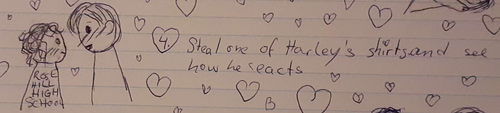 4. Steal one of Harley's shirts and see
how he reacts
ROSE
HILL
HIGH
SCHOOL
B